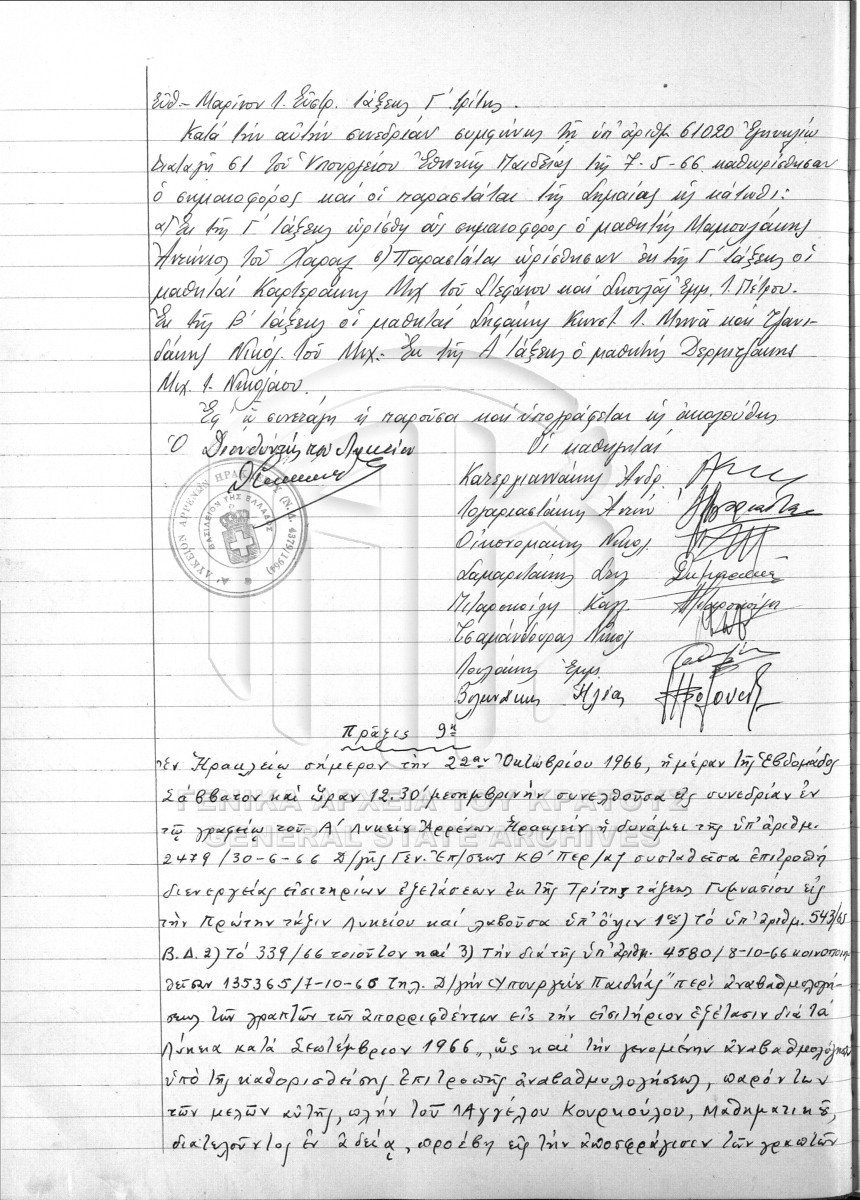 Εὐθ - Μαρίνου Ι. Εὐστρ. τάξεως Γ΄ τρίτης.
Κατά τήν αὐτήν συνεδρίαν συμφώνως τῇ ὑπ' ἀριθμ 61020 Ἐγκυκλίῳ
διαταγῇ 51 τοῦ Ὑπουργείου Ἐθνικῆς Παιδείας τῆς 7-5-66 καθωρίσθησαν
ὁ σημαιοφόρος καί οἱ παραστάται τῆς Σημαίας ὡς κάτωθι:
α) Ἐκ τῆς Γ΄ τάξεως ὡρίσθη ὡς σημαιοφόρος ὁ μαθητής Μαμουλάκης
Ἀντώνιος τοῦ Χαραλ β) Παραστάται ὡρίσθησαν ἐκ τῆς Γ΄ τάξεως οἱ
μαθηταί Καρτεράκης Μιχ τοῦ Στεφάνου καί Σκουλᾶς Ἐμμ. τ. Πέτρου.
Ἐκ τῆς Β΄ τάξεως οἱ μαθηταί Σηφάκης Κωνστ τ. Μηνᾶ καί Τζανι-
δάκης Νικόλ. τοῦ Μιχ.- Ἐκ τῆς Α΄ τάξεως ὁ μαθητής Δερμιτζάκης
Μιχ. τ. Νικολάου.
Ἐφ' ᾧ συνετάγη ἡ παροῦσα καί ὑπογράφεται ὡς ἀκολούθως
Ὁ Διευθυντής του Λυκείου
Οἱ καθηγηταί
Α΄ ΛΥΚΕΙΟΝ ΑΡΡΕΝΩΝ ΗΡΑΚΛΕΙΟΥ (Ν.Δ. 4379/1964)
ΒΑΣΙΛΕΙΟΝ ΤΗΣ ΕΛΛΑΔΟΣ
Κατεργιαννάκης Ἀνδρ.
Λογαριαστάκης Ἀντών
Οἰκονομάκης Νικολ.
Σαμαριτάκης Στυλ
Πιταροκοίλης Καλ.
Τσαμάνδουρας Νικολ
Λουλάκης Ἐμμ.
Βολανάκης Ἠλίας
Πρᾶξις 9η
Ἐν Ἡρακλείῳ σήμερον τήν 22αν Ὀκτωβρίου 1966, ἡμέραν τῆς Ἑβδομάδος
Σάββατον καί ὥραν 12,30' μεσημβρινήν συνελθοῦσα εἰς συνεδρίαν ἐν
τῷ γραφείῳ τοῦ Α΄ Λυκείου Ἀρρένων Ἡρακλείου ἡ δυνάμει τῆς ὑπ' ἀριθμ.
2479/30-6-66 Δ/γῆς Γεν. Ἐπ/σεως Κθ' Περ/ας συσταθεῖσα ἐπιτροπή
διενεργείας εἰσιτηρίων ἐξετάσεων ἐκ τῆς Τρίτης τάξεως Γυμνασίου εἰς
τήν Πρώτην τάξιν Λυκείου καί λαβοῦσα ὑπ' ὄψιν 1ον) τό ὑπ' ἀριθμ. 543/65
Β.Δ. 2) τό 339/66 τοιοῦτον καί 3) Τήν διά τῆς ὑπ' ἀριθμ. 4580/8-10-66 κοινοποιη-
θεῖσαν 135365/7-10-66 τηλ. Δ/γήν Ὑπουργείου Παιδείας "περί ἀναβαθμολογή-
σεως τῶν γραπτῶν τῶν ἀπορριφθέντων εἰς τήν εἰσιτήριον ἐξέτασιν διά τά
Λύκεια κατά Σεπτέμβριον 1966", ὡς καί τήν γενομένην ἀναβαθμολόγησιν
ὑπό τῆς καθορισθείσης ἐπιτροπῆς ἀναβαθμολογήσεως, παρόντων
τῶν μελῶν αὐτῆς, πλήν τοῦ Ἀγγέλου Κουρκούλου, Μαθηματικοῦ,
διατελοῦντος ἐν ἀδείᾳ, προέβη εἰς τήν ἀποσφράγισιν τῶν γραπτῶν
ΓΕΝΙΚΑ ΑΡΧΕΙΑ ΤΟΥ ΚΡΑΤΟΥΣ
GENERAL STATE ARCHIVES